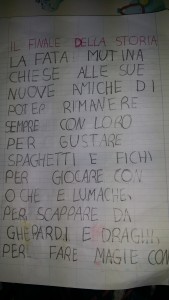 IL FINALE DELLA STORIA
LA FATA MUTINA
CHIESE ALLE SUE
NUOVE AMICHE DI
POTER RIMANERE
SEMPRE CON LORO
PER GUSTARE
SPAGHETTI E FICHI
PER GIOCARE CON
OCHE E LUMACHE,
PER SCAPPARE DA
GHEPARDI E DRAGHI,
PER FARE MAGIE CON